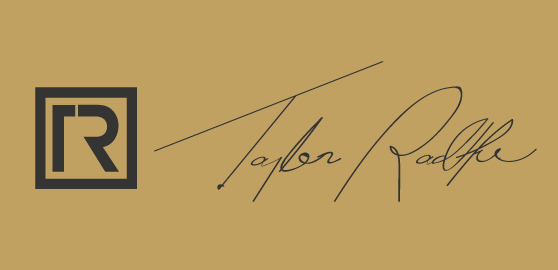 TR
Taylor Radtke